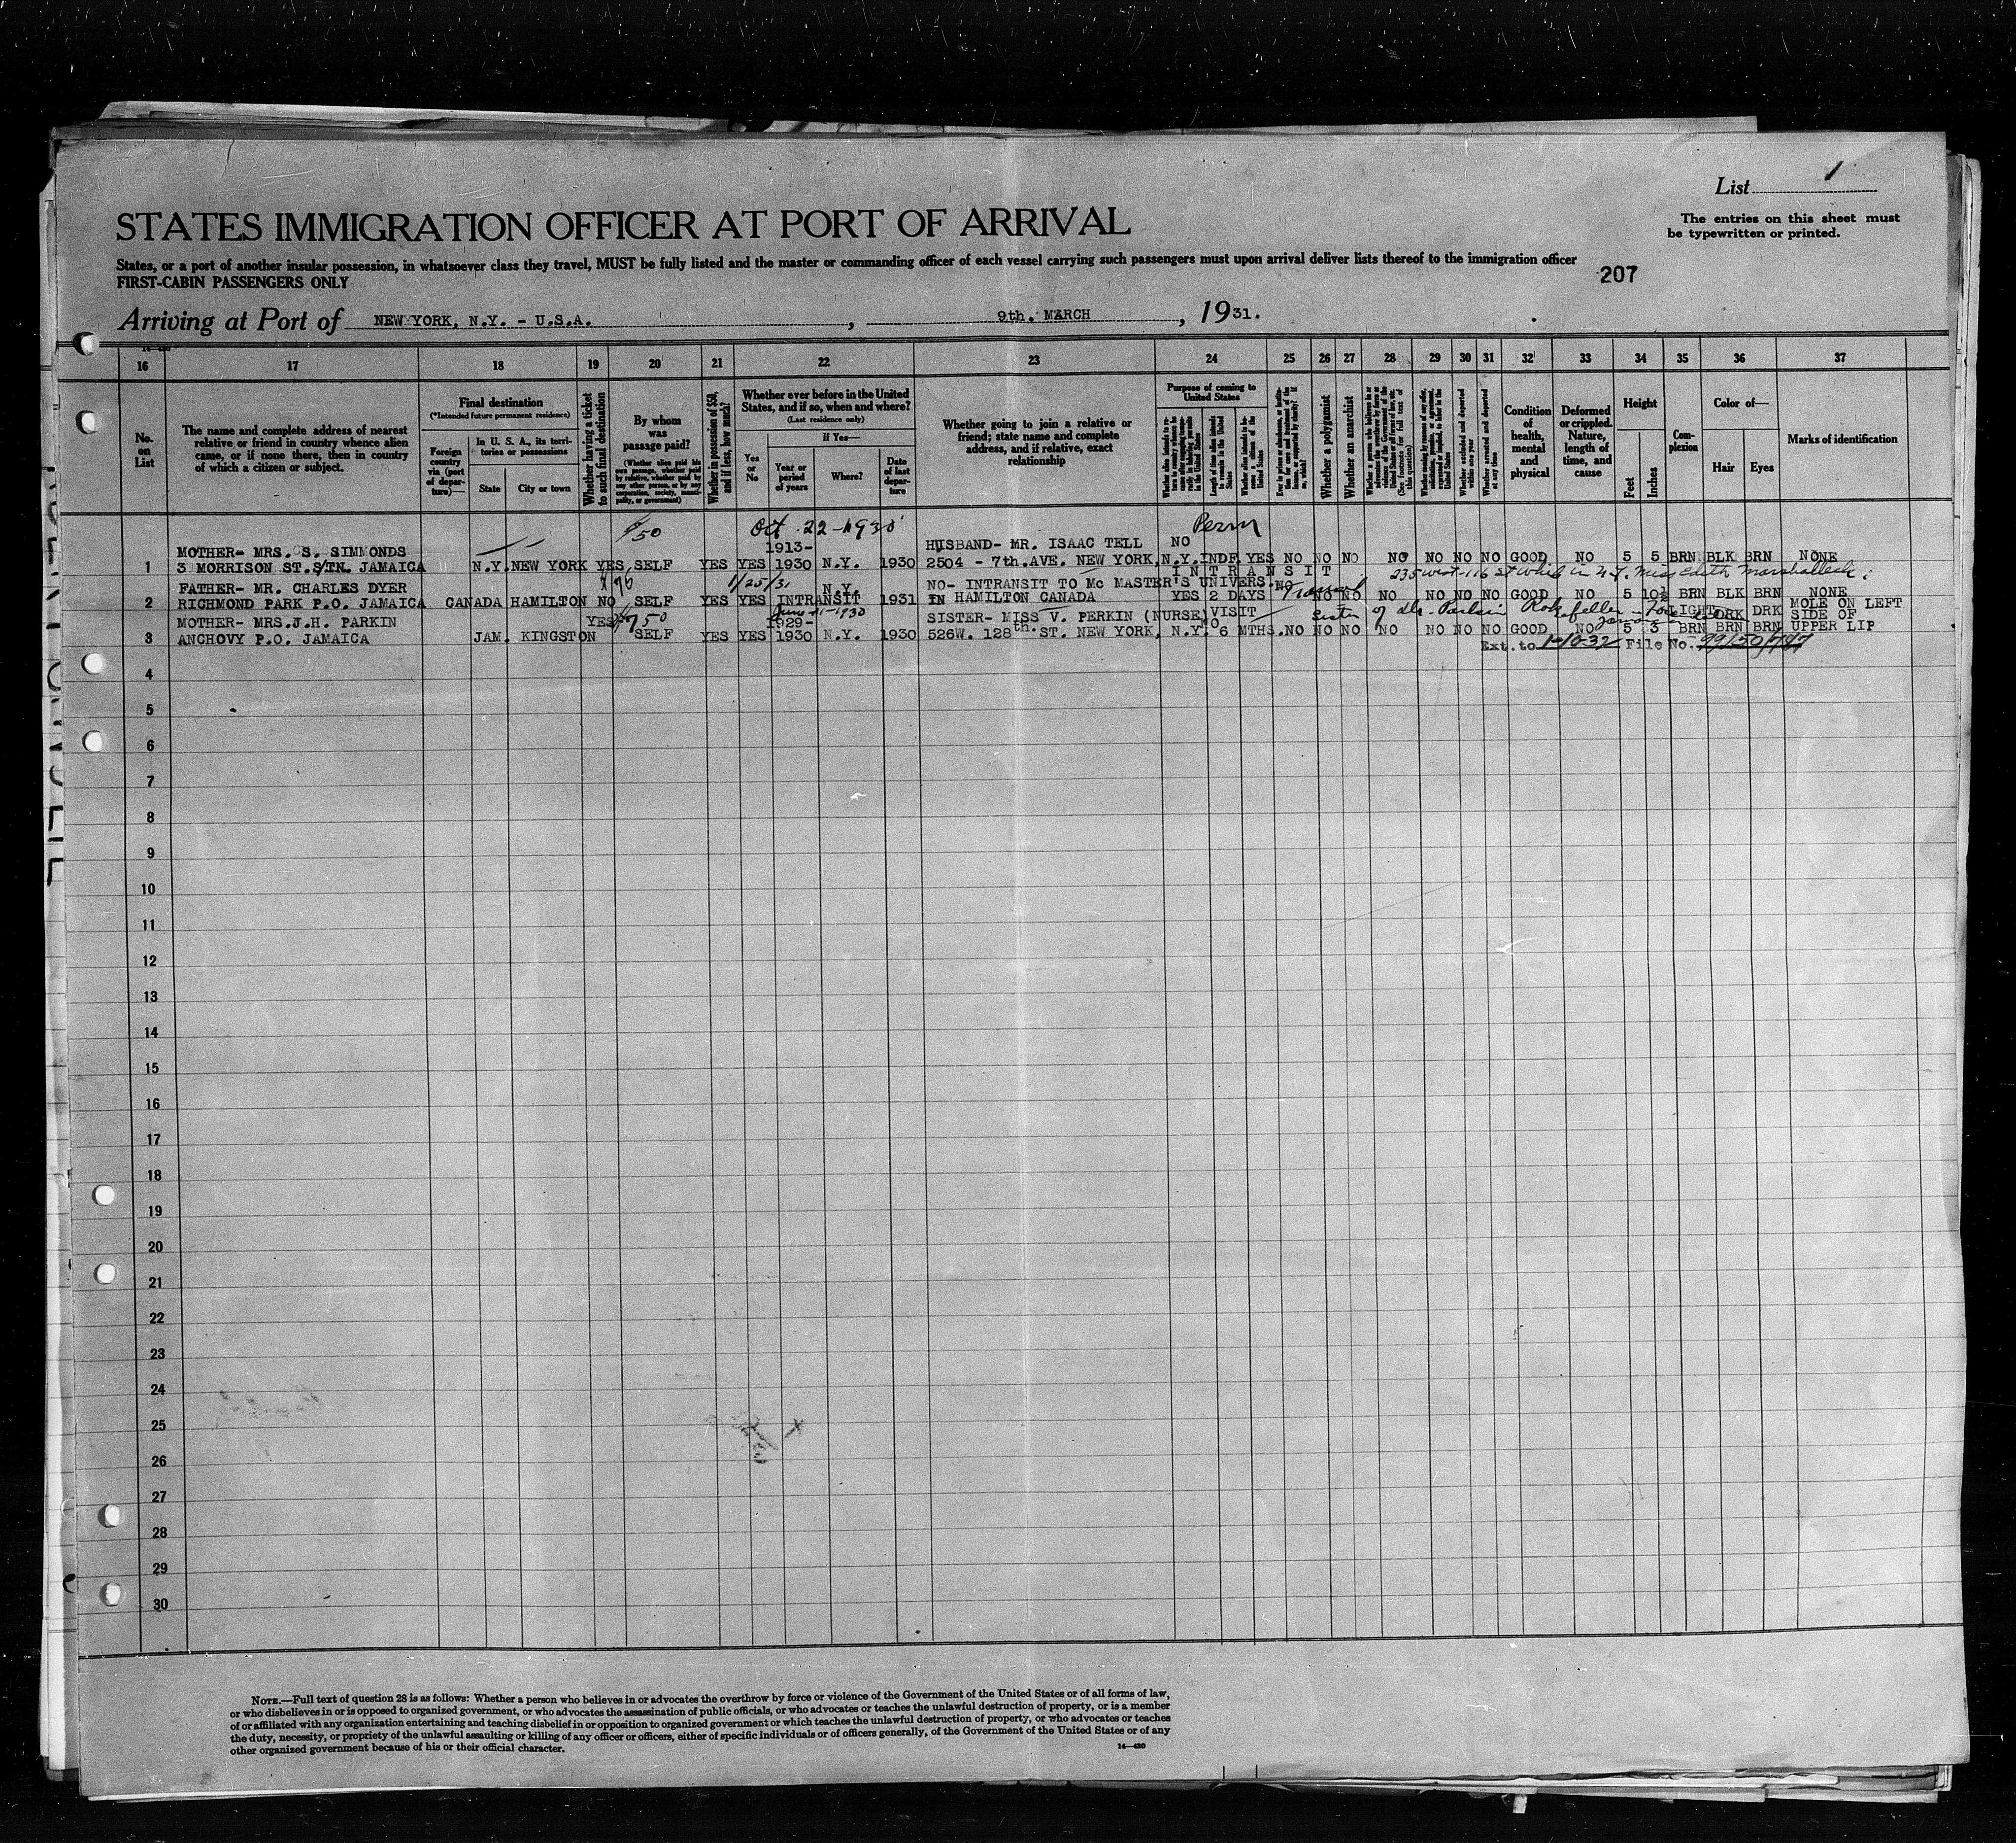 List 1
The entries on this sheet must
be typewritten or printed.
STATES IMMIGRATION OFFICER AT PORT OF ARRIVAL
States, or a port of another insular possession, in whatsoever class they travel, MUST be fully listed and the master or commanding officer of each vessel carrying such passengers must upon arrival deliver lists thereof to the immigration officer
FIRST-CABIN PASSENGERS ONLY
207
Arriving at Port of NEW YORK, N.Y. - U.S.A. , 9th. MARCH , 1931.
16 17 18 19 20 21 22 23 24 25 26 27 28 29 30 31 32 33 34 35 36 37
No. on List
The name and complete address of nearest relative or friend in country whence alien came, or if none there, then in country of which a citizen or subject.
Final destination
(*Intended future permanent residence)
Foreign country via (port of departure)—
In U. S. A., its territories or possessions
State
City or town
Whether having a ticket to such final destination
By whom was passage paid?
(Whether alien paid his own passage, whether paid by relative, whether paid by any other person, or by any corporation, society, municipality, or government)
Whether in possession of $50, and if less, how much?
Whether ever before in the United States, and if so, when and where?
(Last residence only)
If Yes—
Yes or No
Year or period of years
Where?
Date of last departure
Whether going to join a relative or friend; state name and complete address, and if relative, exact relationship
Purpose of coming to United States
Length of time alien intends to remain in the United States
Whether alien intends to become a citizen of the United States
Whether a polygamist
Whether an anarchist
Whether excluded and deported within one year
Whether arrested and deported at any time
Condition of health, mental and physical
Deformed or crippled. Nature, length of time, and cause
Height
Feet
Inches
Complexion
Color of—
Hair
Eyes
Marks of identification
$/50 Oct. 22-1930 Perm
MOTHER- MRS. S. SIMMONDS 1913- HUSBAND- MR. ISAAC TELL NO
1 3 MORRISON ST. S/TN. JAMAICA N.Y. NEW YORK YES SELF YES YES 1930 N.Y. 1930 2504 - 7th.AVE. NEW YORK, N.Y. INDF. YES NO NO NO NO NO NO NO GOOD NO 5 5 BRN BLK BRN NONE
INTRANSIT 235 west-116 St while in N.Y. Miss Edith Marshalleck
FATHER- MR. CHARLES DYER 1/25/31 N.Y. NO- INTRANSIT TO Mc MASTER'S UNIVERS. NO
2 RICHMOND PARK P.O. JAMAICA CANADA HAMILTON NO SELF YES YES INTRANSIT 1931 IN HAMILTON CANADA YES 2 DAYS NO NO NO NO NO NO GOOD NO 5 10½ BRN BLK BRN NONE
MOTHER- MRS.J.H. PARKIN YES 750 June-11-1930 1929- SISTER- MISS V. PERKIN (NURSE) VISIT NO Sister of LIGHT DRK DRK MOLE ON LEFT SIDE OF
3 ANCHOVY P.O. JAMAICA JAM. KINGSTON SELF YES YES 1930 N.Y. 1930 526W. 128th ST. NEW YORK, N.Y. 6 MTHS. NO NO NO NO NO NO NO GOOD NO 5 3 BRN BRN BRN UPPER LIP
Ext. to 1-10-32 File No. 99150/787
4
5
6
7
8
9
10
11
12
13
14
15
16
17
18
19
20
21
22
23
24
25
26
27
28
29
30
NOTE.—Full text of question 28 is as follows: Whether a person who believes in or advocates the overthrow by force or violence of the Government of the United States or of all forms of law,
or who disbelieves in or is opposed to organized government, or who advocates the assassination of public officials, or who advocates or teaches the unlawful destruction of property, or is a member
of or affiliated with any organization entertaining and teaching disbelief in or opposition to organized government or which teaches the unlawful destruction of property, or who advocates or teaches
the duty, necessity, or propriety of the unlawful assaulting or killing of any officer or officers, either of specific individuals or of officers generally, of the Government of the United States or of any
other organized government because of his or their official character.
14—430